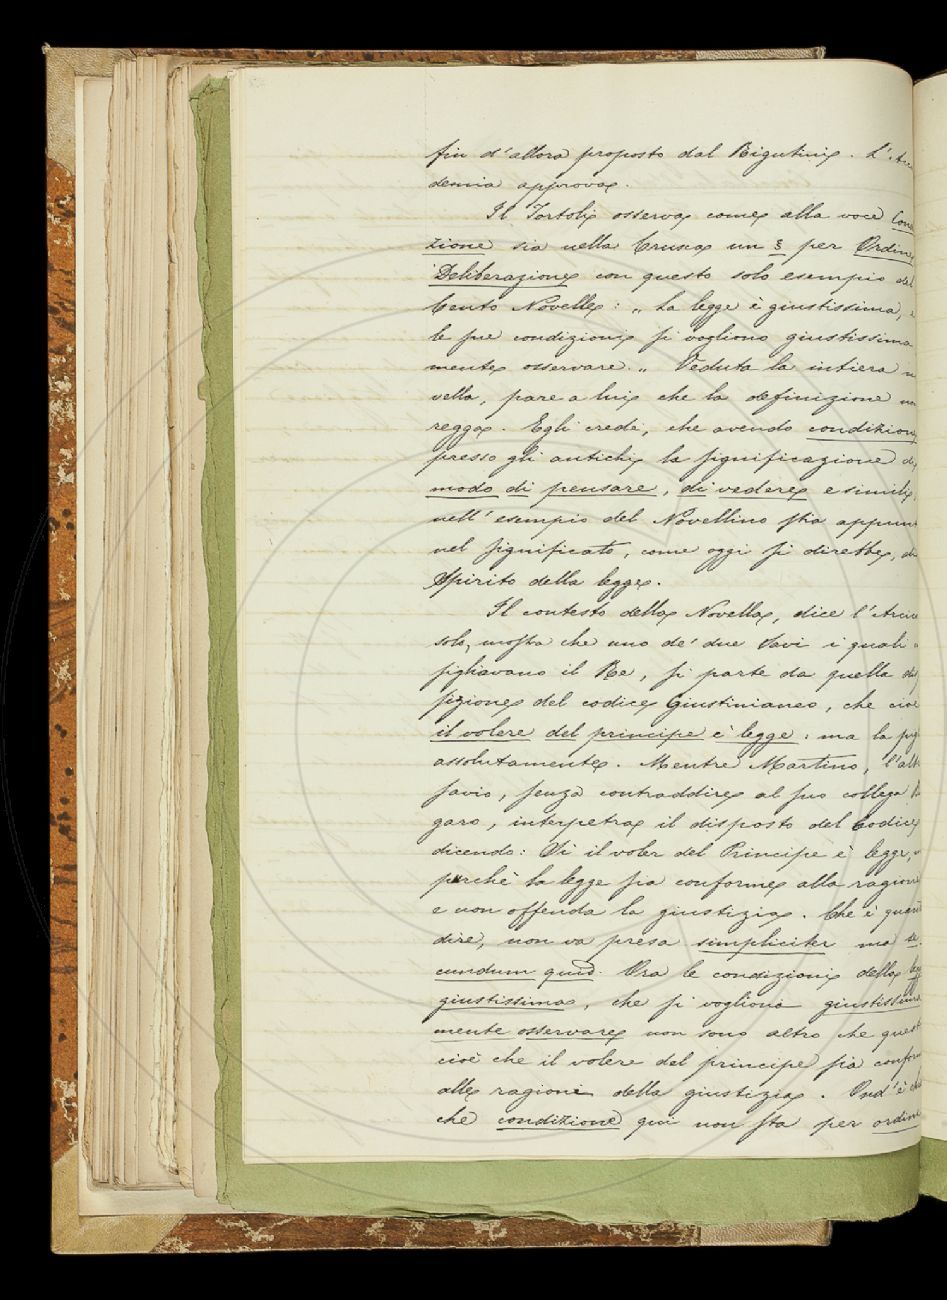 fin d'allora proposto dal Rigutini. L'Acc
demia approva.
Il Tortoli osserva come alla voce Con
zione sia nella Crusca un § per Ordine
Deliberazione con questo solo esempio del
Cento Novelle: „ La legge è giustissima, e
le sue condizioni si vogliono giustissima
mente osservare. „ Veduta la intiera n
vella, pare a lui che la definizione no
regga. Egli crede, che avendo condizion
presso gli antichi la significazione di
modo di pensare, di vedere e simili,
nell'esempio del Novellino stia appun
nel significato, come oggi si direbbe, di
Spirito della legge.
Il contesto della Novella, dice l'Arcico
solo, mostra che uno de' due Savi i quali
sigliavano il Re, si parte da quella di
sizione del codice Giustinianeo, che cioè
il volere del principe è legge: ma la pig
assolutamente. Mentre Martino, l'alt
savio, senza contraddire al suo collega Bu
garo, interpetra il disposto del Codice
dicendo: Sì il voler del Principe è legge,
purchè la legge sia conforme alla ragion
e non offenda la giustizia. Che è quant
dire, non va presa simpliciter ma se
cundum quid. Ora le condizioni della leg
giustissima, che si vogliono giustissima
mente osservare non sono altro che quest
cioè che il volere del principe sia conform
alle ragioni della giustizia. Ond'è chi
che condizione qui non sta per ordine